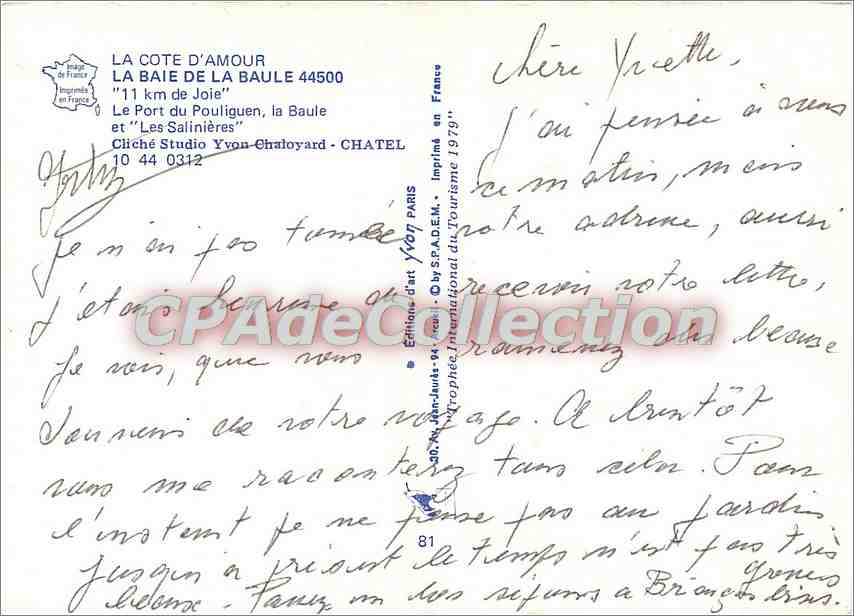 Image
de France
Imprimée
en France
LA COTE D'AMOUR
LA BAIE DE LA BAULE 44500
"11 km de Joie"
Le Port du Pouliguen, la Baule
et "Les Salinières"
Cliché Studio Yvon Chaloyard - CHATEL
10 44 0312
Editions d'art Yvon PARIS
30, Av. Jean-Jaurès - 94 - Arcueil - © by S.P.A.D.E.M. • Imprimé en France
"Trophée International du Tourisme 1979"
81
CPAdeCollection
Chère Yvette,
J'ai pensée à vous
ce matin, mais
Je n'ai pas votre adresse, aussi
j'étais heureuse de recevoir votre lettre,
Je vois, que vous ramenez des beaux
souvenirs de votre voyage. A bientôt
vous me raconterez tous cela. Pour
l'instant je ne pense pas au jardin
jusqu'a présent le temps n'est pas très
beaux. Passez un bon séjour a
gros
bises.